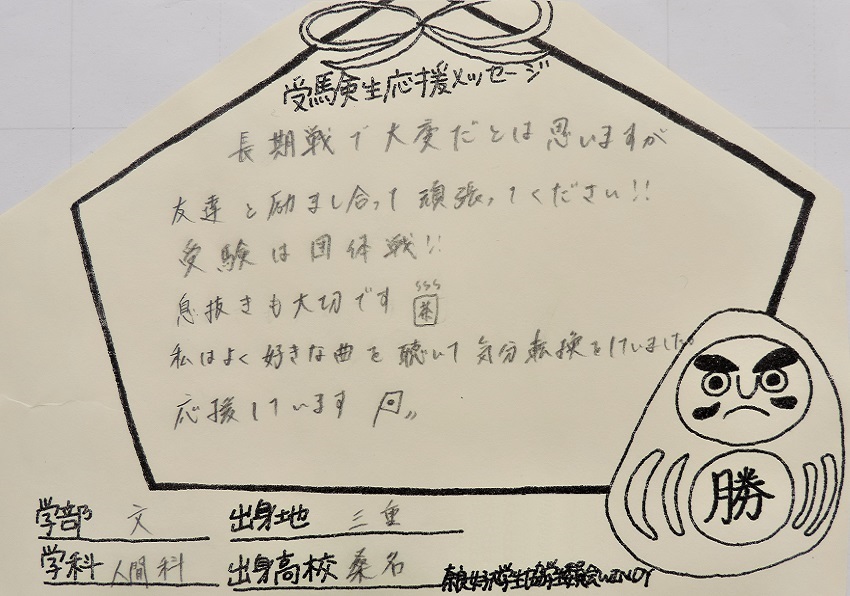 受験生応援メッセージ
長期戦で大変だとは思いますが
友達と励まし合って頑張ってください!!
受験は団体戦!!
息抜きも大切です 茶
私はよく好きな曲を聴いて気分転換をしていました。
応援しています
勝
学部 文 出身地 三重
学科 人間科 出身高校 桑名
奈良女子大学生協学生委員会WENDY